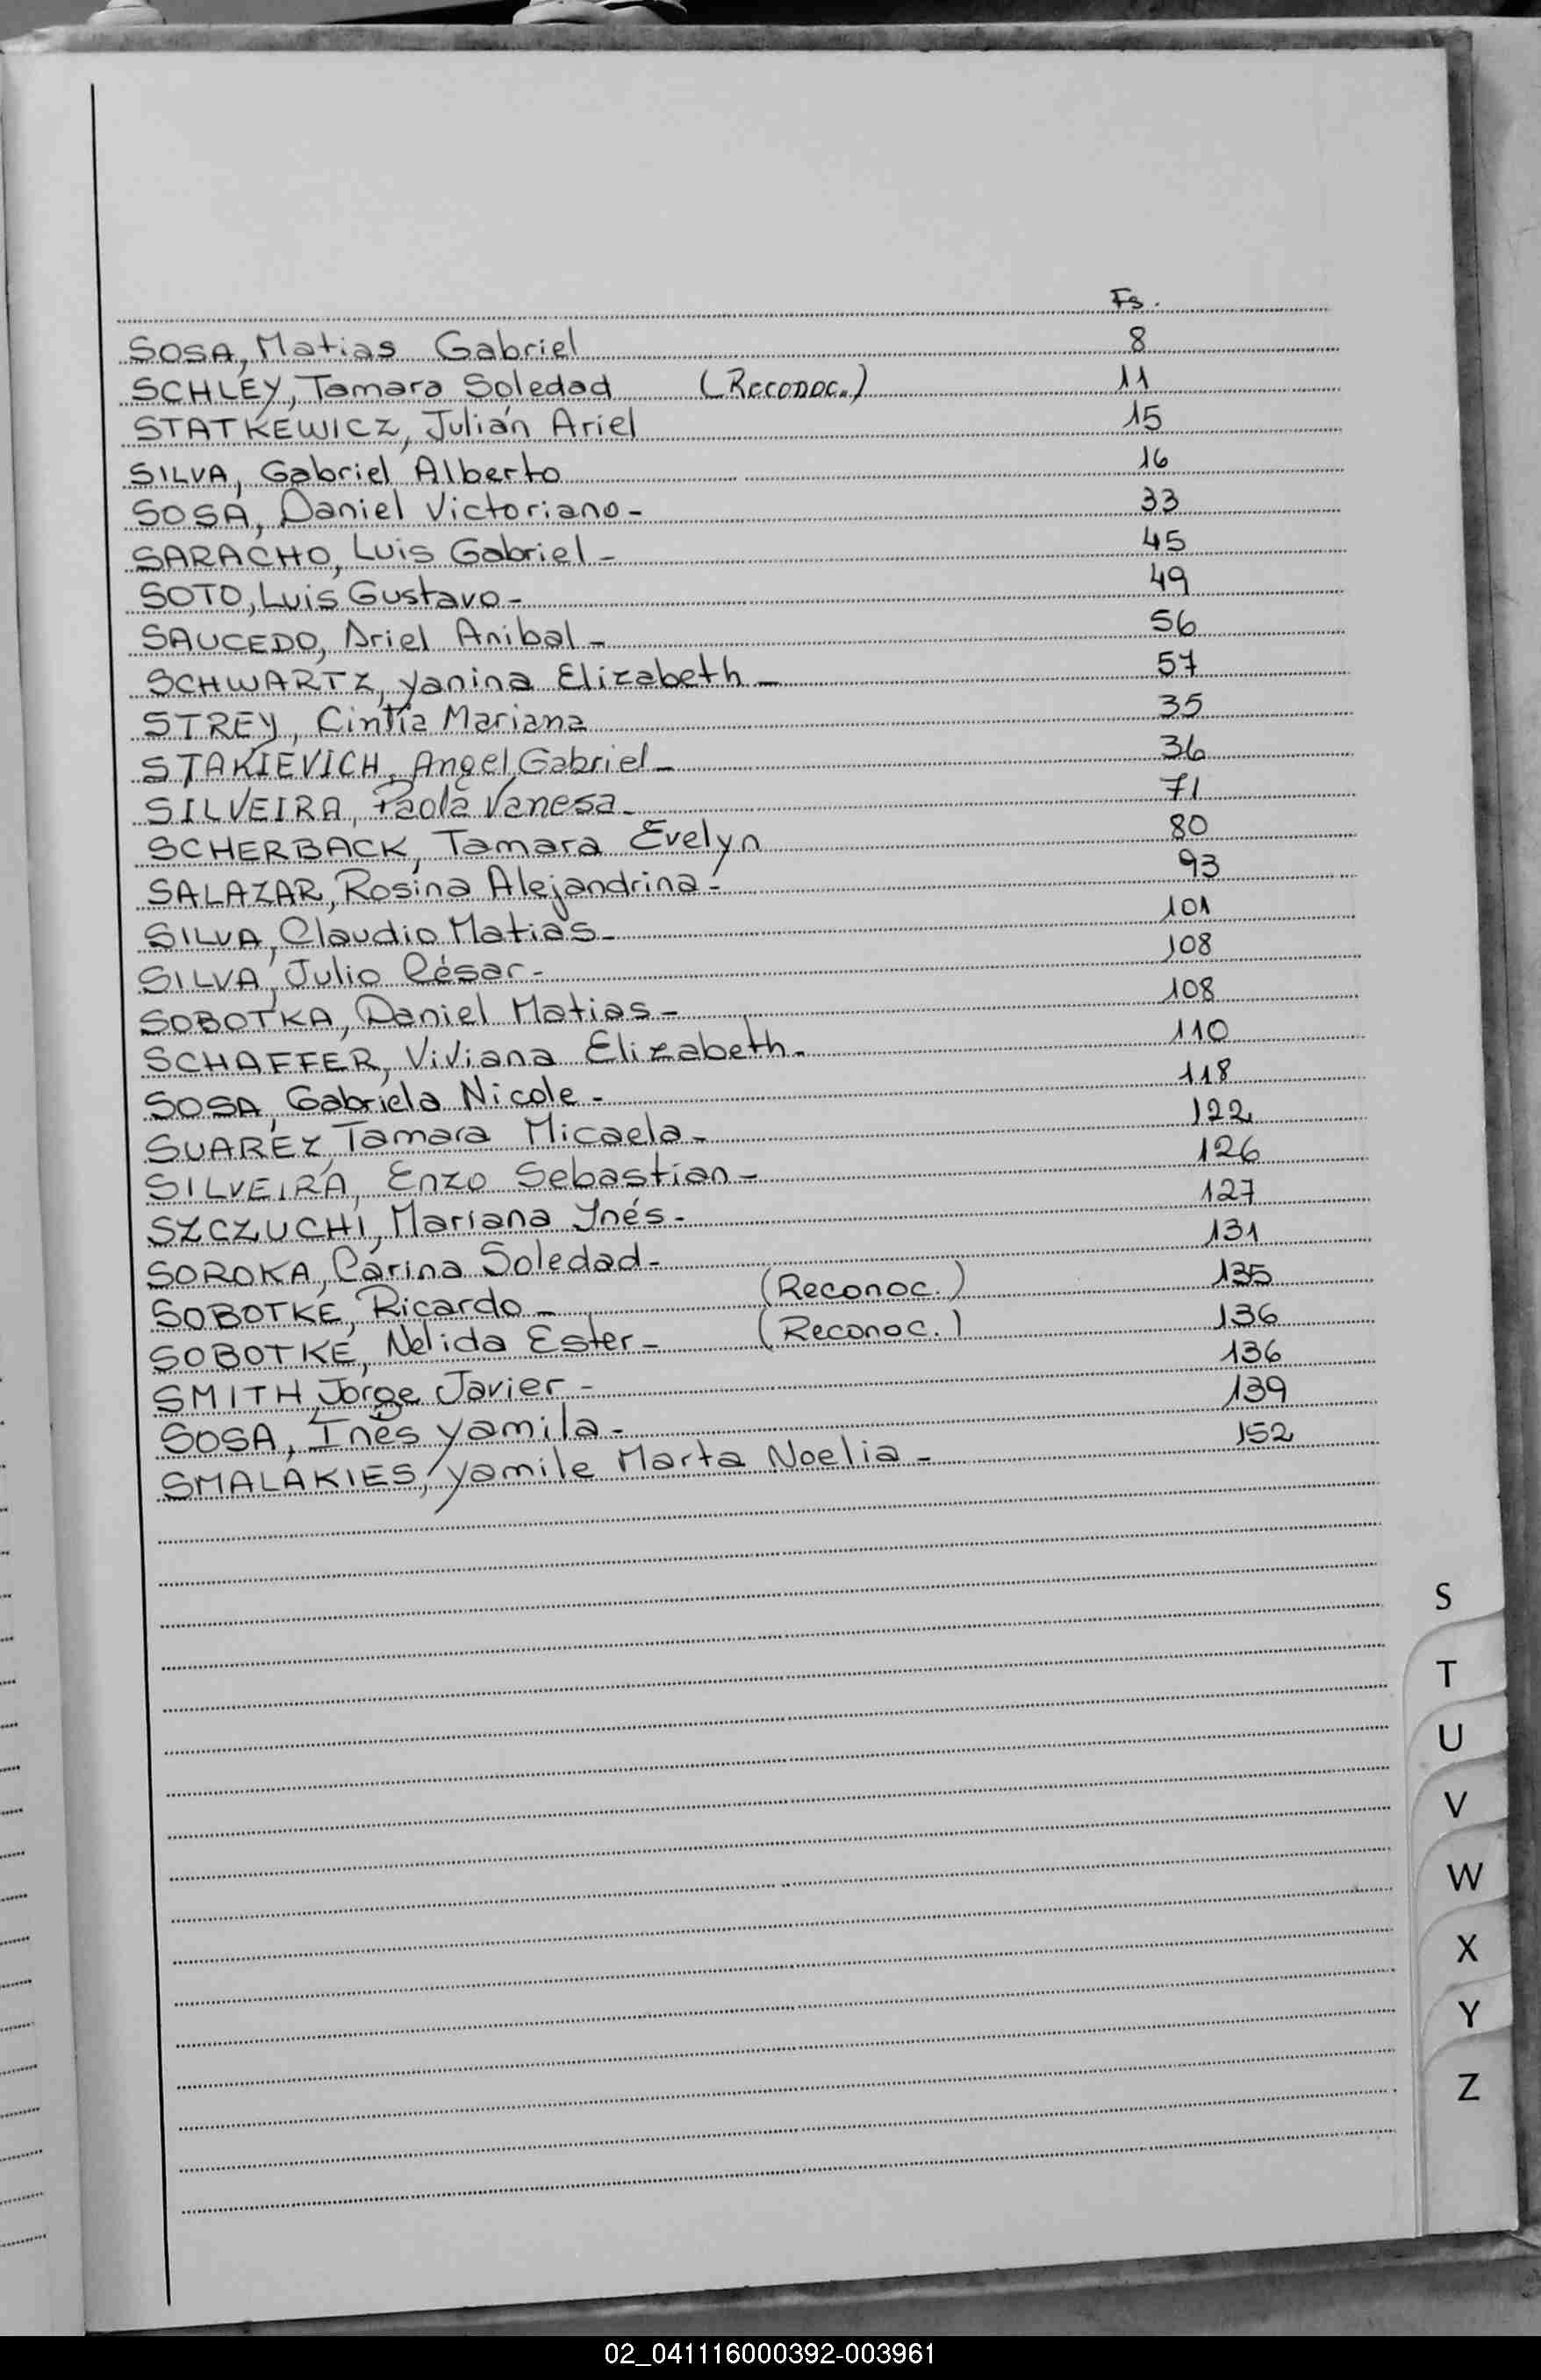 Fs.
SOSA, Matias Gabriel 8
SCHLEY, Tamara Soledad (Reconoc.) 11
STATKEWICZ, Julián Ariel 15
SILVA, Gabriel Alberto 16
SOSA, Daniel Victoriano- 33
SARACHO, Luis Gabriel- 45
SOTO, Luis Gustavo- 49
SAUCEDO, Ariel Anibal- 56
SCHWARTZ, Yanina Elizabeth- 57
STREY, Cintia Mariana 35
STAKIEVICH, Angel Gabriel- 36
SILVEIRA, Paola Vanesa- 71
SCHERBACK, Tamara Evelyn 80
SALAZAR, Rosina Alejandrina- 93
SILVA, Claudio Matias- 101
SILVA, Julio César- 108
SOBOTKA, Daniel Matias- 108
SCHAFFER, Viviana Elizabeth- 110
SOSA, Gabriela Nicole- 118
SUAREZ, Tamara Micaela- 122
SILVEIRA, Enzo Sebastián- 126
SZCZUCHI, Mariana Ynés- 127
SOROKA, Carina Soledad- 131
SOBOTKE, Ricardo- (Reconoc.) 135
SOBOTKE, Nelida Ester- (Reconoc.) 136
SMITH, Jorge Javier- 136
SOSA, Inés Yamila- 139
SMALAKIES, Yamile Marta Noelia- 152
S
T
U
V
W
X
Y
Z
02_041116000392-003961